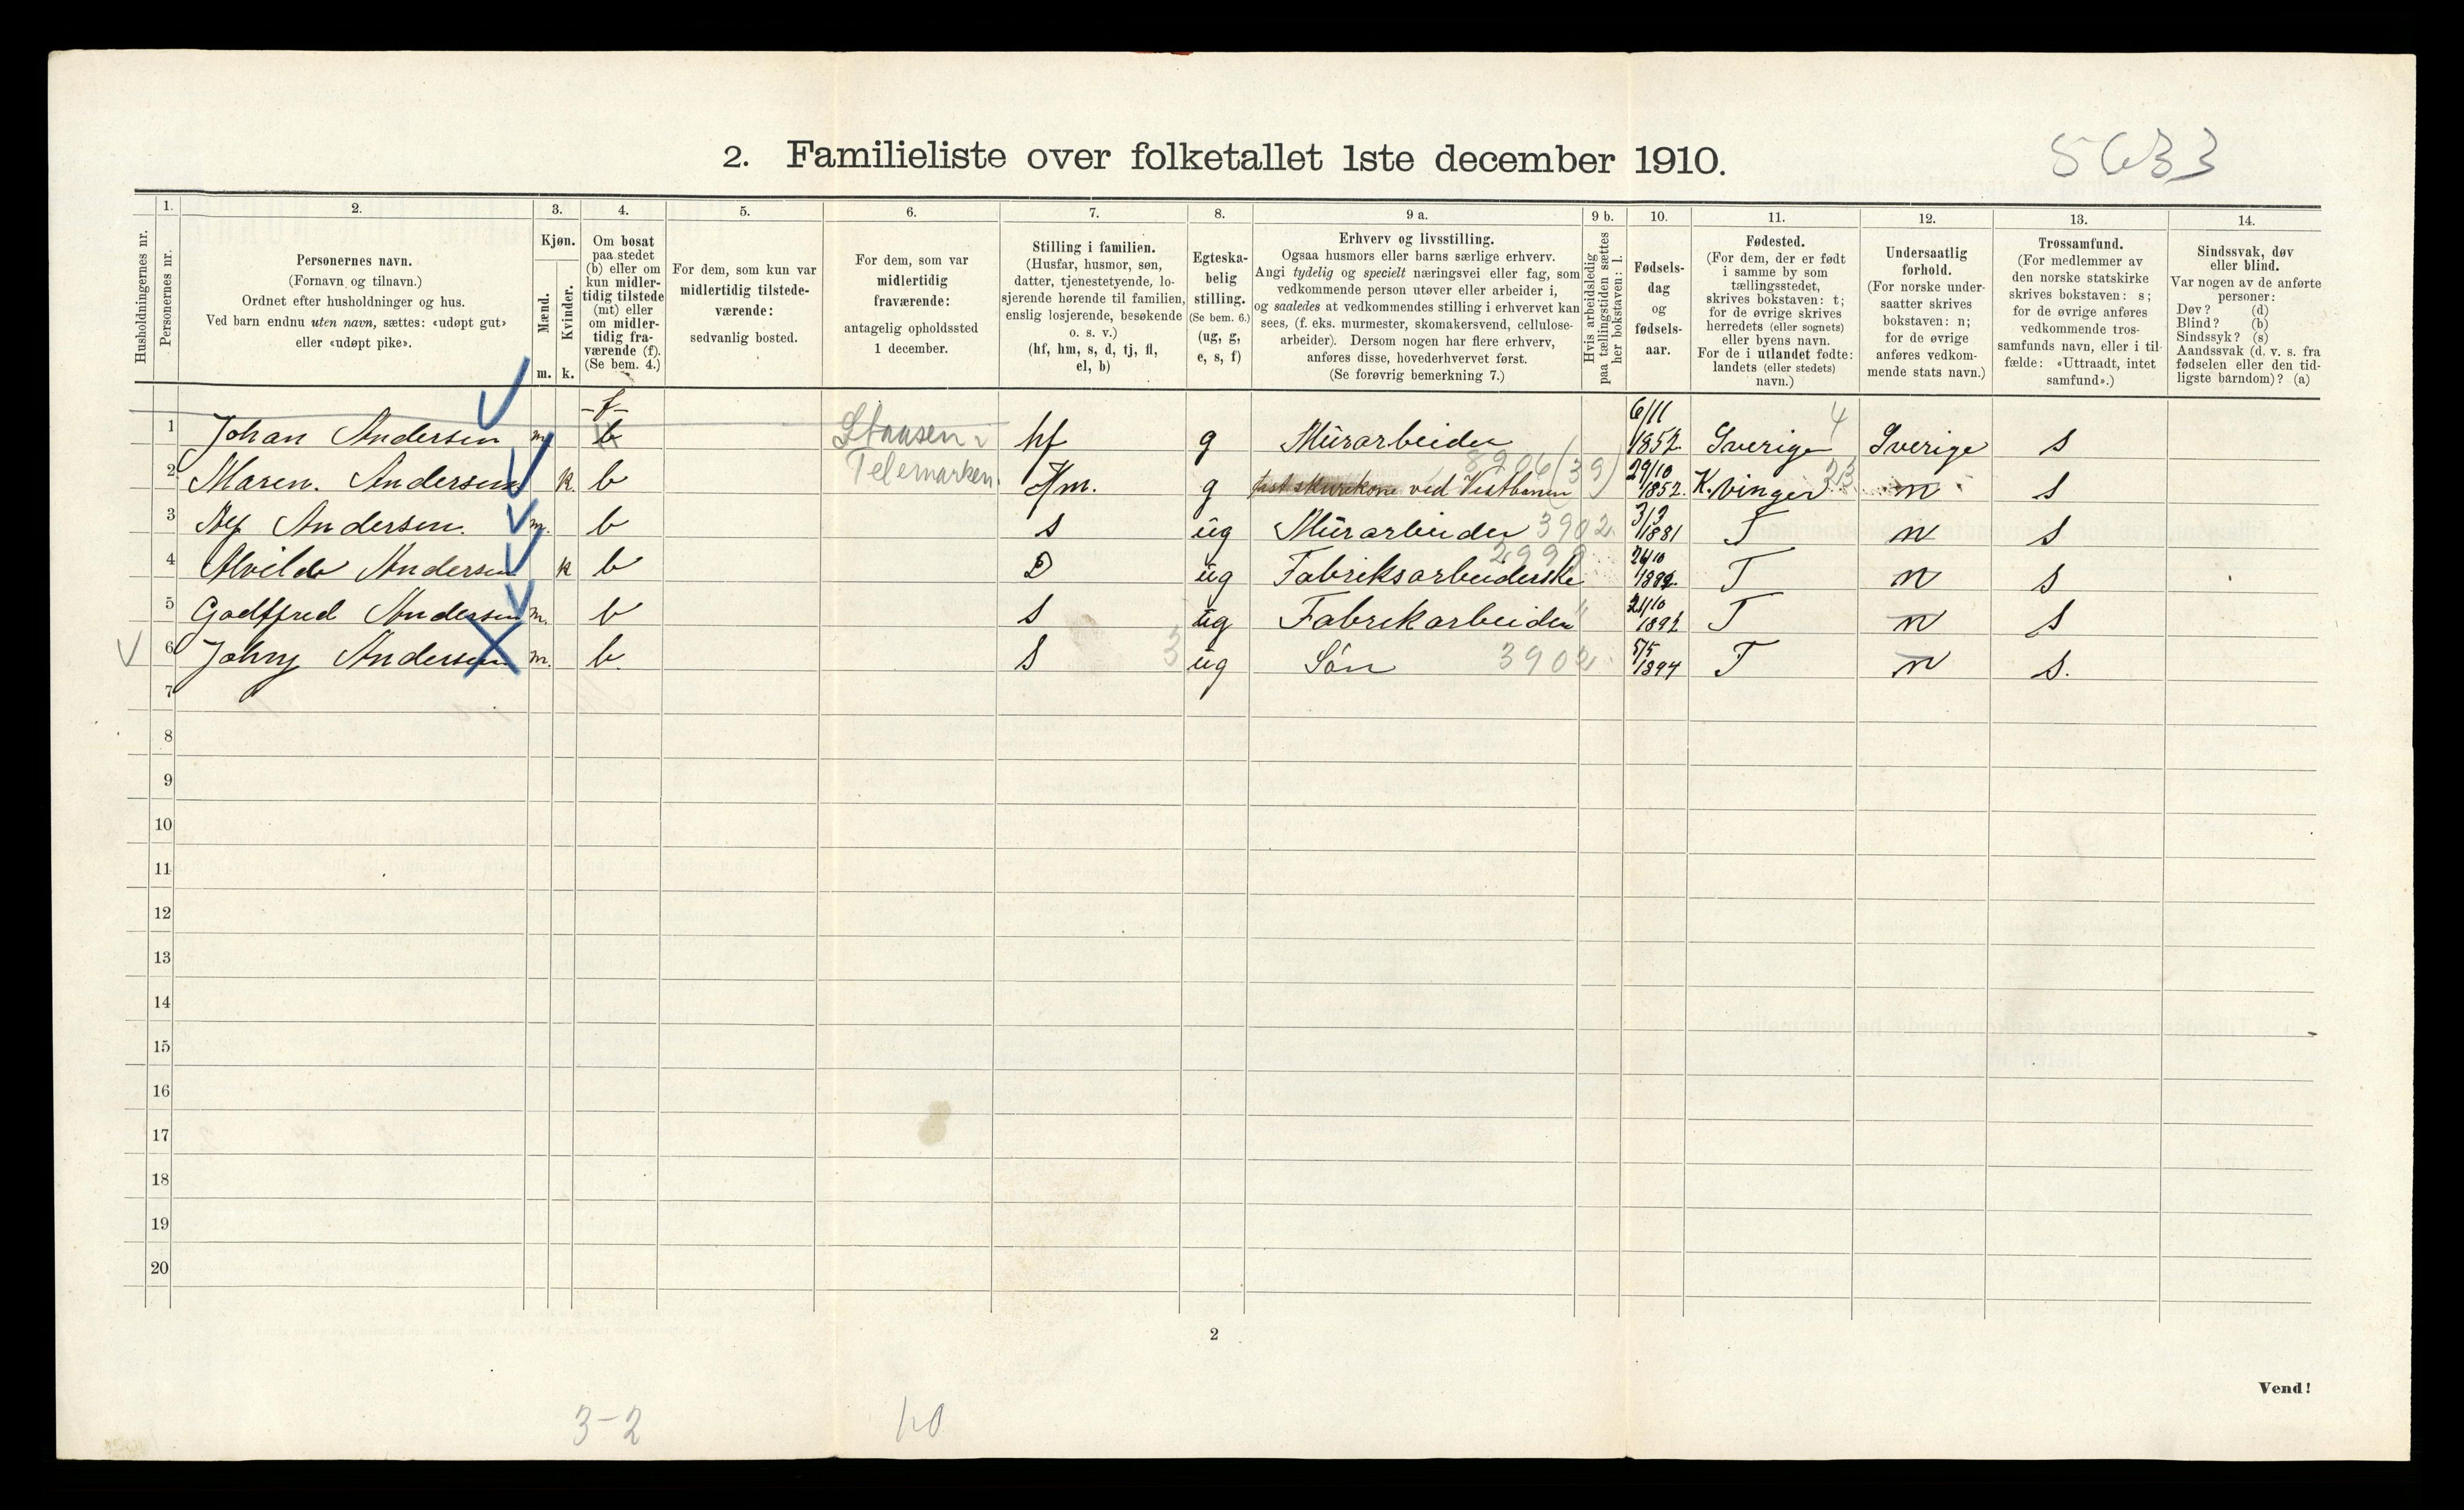 2. Familieliste over folketallet 1ste december 1910.
5633
Husholdningernes nr.
1.
Personernes nr.
2.
Personernes navn.
(Fornavn og tilnavn.)
Ordnet efter husholdninger og hus.
Ved barn endnu uten navn, sættes: «udøpt gut»
eller «udøpt pike».
3.
Kjøn.
Mænd.
Kvinder.
m. k.
4.
Om bosat
paa stedet
(b) eller om
kun midler-
tidig tilstede
(mt) eller
om midler-
tidig fra-
værende (f).
(Se bem. 4.)
5.
For dem, som kun var
midlertidig tilstede-
værende:
sedvanlig bosted.
6.
For dem, som var
midlertidig
fraværende:
antagelig opholdssted
1 december.
7.
Stilling i familien.
(Husfar, husmor, søn,
datter, tjenestetyende, lo-
sjerende hørende til familien,
enslig losjerende, besøkende
o. s. v.)
(hf, hm, s, d, tj, fl,
el, b)
8.
Egteska-
belig
stilling.
(Se bem. 6.)
(ug, g,
e, s, f)
9 a.
Erhverv og livsstilling.
Ogsaa husmors eller barns særlige erhverv.
Angi tydelig og specielt næringsvei eller fag, som
vedkommende person utøver eller arbeider i,
og saaledes at vedkommendes stilling i erhvervet kan
sees, (f. eks. murmester, skomakersvend, cellulose-
arbeider). Dersom nogen har flere erhverv,
anføres disse, hovederhvervet først.
(Se forøvrig bemerkning 7.)
9 b.
Hvis arbeidsledig
paa tællingstiden sættes
her bokstaven: l.
10.
Fødsels-
dag
og
fødsels-
aar.
11.
Fødested.
(For dem, der er født
i samme by som
tællingsstedet,
skrives bokstaven: t;
for de øvrige skrives
herredets (eller sognets)
eller byens navn.
For de i utlandet fødte:
landets (eller stedets)
navn.)
12.
Undersaatlig
forhold.
(For norske under-
saatter skrives
bokstaven: n;
for de øvrige
anføres vedkom-
mende stats navn.)
13.
Trossamfund.
(For medlemmer av
den norske statskirke
skrives bokstaven: s;
for de øvrige anføres
vedkommende tros-
samfunds navn, eller i til-
fælde: «Uttraadt, intet
samfund».)
14.
Sindssvak, døv
eller blind.
Var nogen av de anførte
personer:
Døv? (d)
Blind? (b)
Sindssyk? (s)
Aandssvak (d. v. s. fra
fødselen eller den tid-
ligste barndom)? (a)
1 Johan Andersen m. -f- b i hf g Murarbeider 6/11 1852 Sverige 4 Sverige s
2 Maren. Andersen k. b Telemarken. Hm. g fast skurekone ved Vestbanen 8906 (39) 29/10 1852. K.vinger 23 n s
3 Andersen. m. b s ug Murarbeider 3902 3/3 1881 T n s
4 Alvilde Andersen k b D ug Fabriksarbeiderske 2999 T n s
5 Godtfred Andersen m. b s ug Fabrikarbeider " 21/10 1892 T n s
6 Johny Andersen m. b. s 3 ug Søn 3902 5/5 1894 T n s.
7
8
9
10
11
12
13
14
15
16
17
18
19
20
2
Vend!
3-2